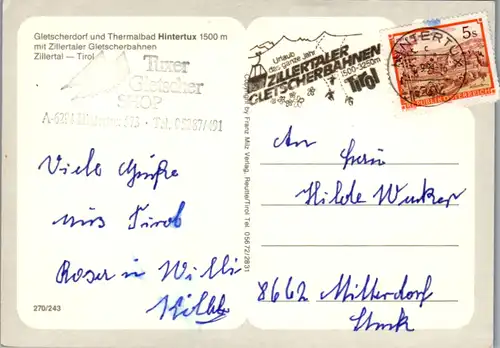 Gletscherdorf und Thermalbad Hintertux 1500 m
mit Zillertaler Gletscherbahnen
Zillertal — Tirol
Tuxer
Gletscher
SHOP
A-6294 Hintertux 575 · Tel. 05287/491
Viele Grüße
aus Tirol
Roser u Willi
270/243
Copyright by Franz Milz Verlag, Reutte/Tirol Tel. 05672/2831
Urlaub
das ganze Jahr
ZILLERTALER
GLETSCHERBAHNEN
1500-3250m
Tirol
HINTERTUX
5s
REPUBLIK ÖSTERREICH
An Frau
Hilde
8662 Mitterdorf
Stmk